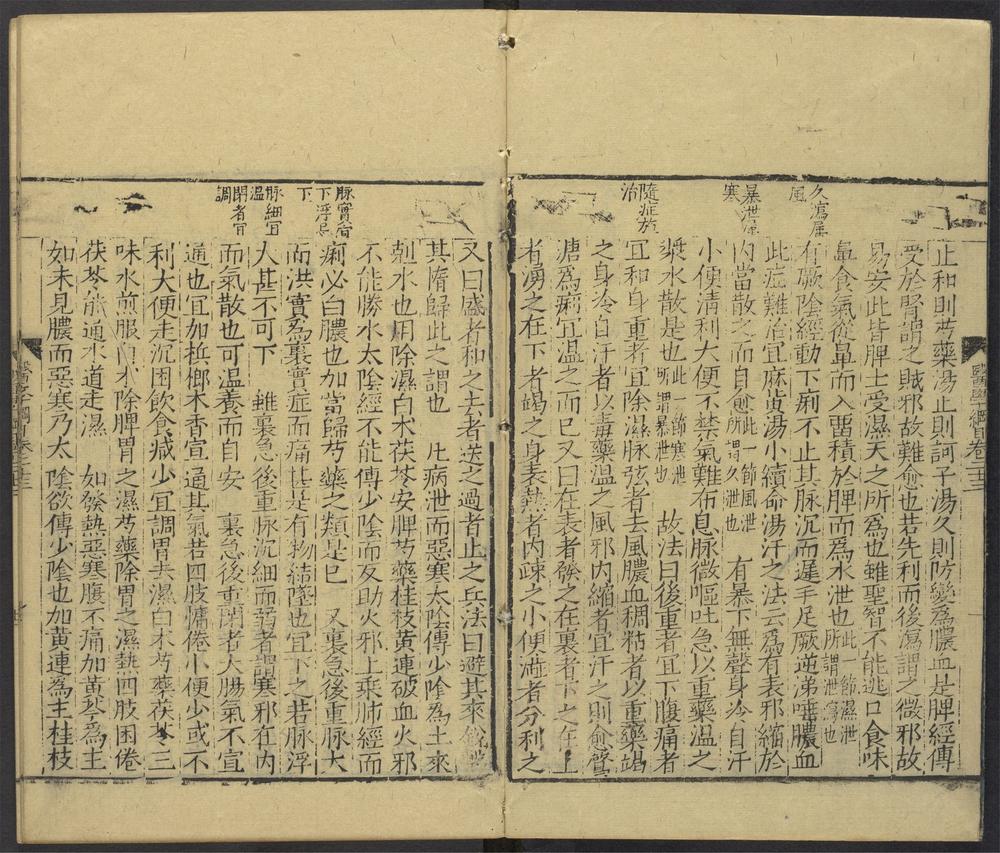 醫學綱目卷二十三
久瀉屬
風
暴泄屬
寒
隨症施
治
正和則芍藥湯止則訶子湯久則防變為膿血是脾經傳
受於腎謂之賊邪故難愈也若先利而後瀉謂之微邪故
易安此皆脾土受濕天之所為也雖聖智不能逃口食味
鼻食氣從鼻而入留積於脾而為水泄也此一節濕泄所謂泄瀉也
有厥陰經動下痢不止其脉沉而遲手足厥逆涕唾膿血
此症難治宜麻黃湯小續命湯汗之法云為有表邪縮於
內當散之而自愈此一節風泄所謂久泄也 有暴下無聲身冷自汗
小便清利大便不禁氣難布息脉微嘔吐急以重藥溫之
漿水散是也此一節寒泄所謂暴泄也 故法曰後重者宜下腹痛者
宜和身重者宜除濕脉弦者去風膿血稠粘者以重藥竭
之身冷自汗者以毒藥溫之風邪內縮者宜汗之則愈鶩
溏為痢宜溫之而已又曰在表者發之在裏者下之在上
者湧之在下者竭之身表熱者內疎之小便澁者分利之
脉實宜
下浮忌
下
脉細宜
溫
閉者宜
調
又曰盛者和之去者送之過者止之兵法曰避其來銳擊
其惰歸此之謂也 此病泄而惡寒太陰傳少陰為土來
剋水也用除濕白木茯苓安脾芍藥桂枝黃連破血火邪
不能勝水太陰經不能傳少陰而反助火邪上乘肺經而
痢必白膿也加當歸芍藥之類是巳 又裏急後重脉大
而洪實為裏實症而痛甚是有物結墜也宜下之若脉浮
大甚不可下 雖裏急後重脉沉細而弱者謂寒邪在內
而氣散也可溫養而自安 裏急後重閉者大腸氣不宣
通也宜加梹榔木香宣通其氣若四肢慵倦小便少或不
利大便走沉困飲食减少宜調胃去濕白木芍藥茯苓三
味水煎服白木除脾胃之濕芍藥除胃之濕熱四肢困倦
茯苓能通水道走濕 如發熱惡寒腹不痛加黃芩為主
如未見膿而惡寒乃太陰欲傳少陰也加黃連為主桂枝